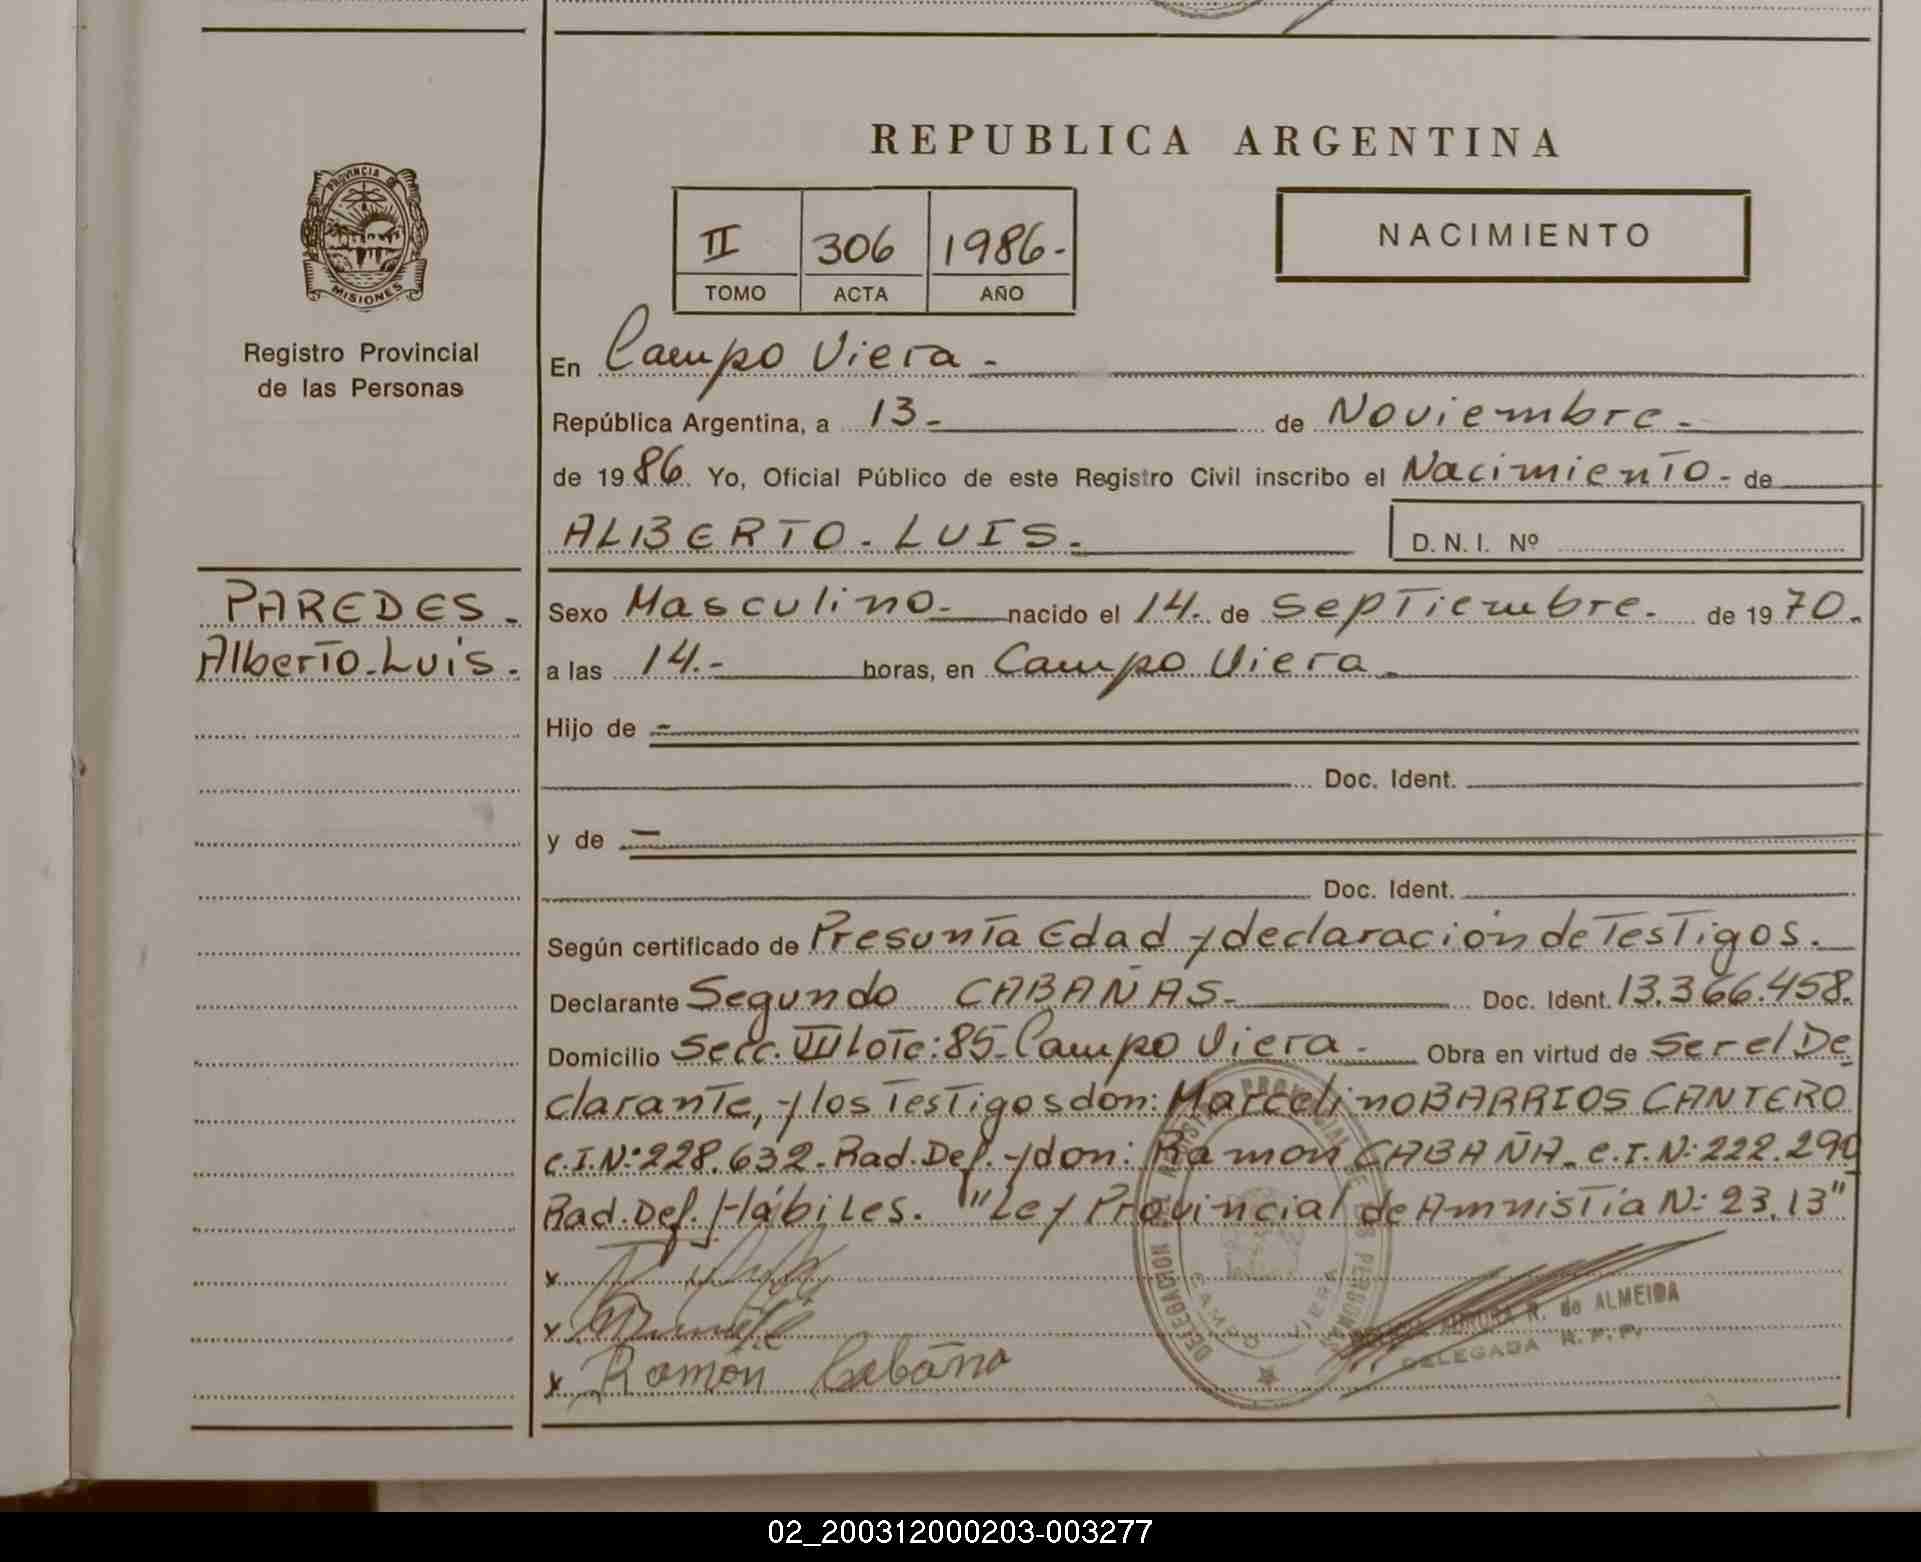 REPUBLICA ARGENTINA
PROVINCIA DE
MISIONES
Registro Provincial
de las Personas
II 306 1986-
TOMO ACTA AÑO
NACIMIENTO
En Campo Viera -
República Argentina, a 13- de Noviembre -
de 1986. Yo, Oficial Público de este Registro Civil inscribo el Nacimiento- de
ALBERTO - LUIS - D. N. I. Nº
PAREDES -
Alberto-Luis -
Sexo Masculino - nacido el 14.- de septiembre - de 1970.
a las 14.- horas, en Campo Viera -
Hijo de -
Doc. Ident.
y de -
Doc. Ident.
Según certificado de Presunta Edad y declaración de Testigos -
Declarante Segundo CABAÑAS - Doc. Ident. 13.366.458.
Domicilio Secc. VII Lote: 85- Campo Viera - Obra en virtud de Ser el De
clarante, y los Testigos don: Marcelino BARRIOS CANTERO
c.I.N: 228.632- Rad. Def. - y don: Ramon CABAÑA - c.I.N: 222.290
Rad. Def. Hábiles. "Ley Provincial de Amnistía N: 23.13"
x
x
x Ramón Cabaña
DELEGACION REGISTRO PROVINCIAL DE LAS PERSONAS
CAMPO VIERA
AURORA R. de ALMEIDA
DELEGADA R. P. P.
02_200312000203-003277